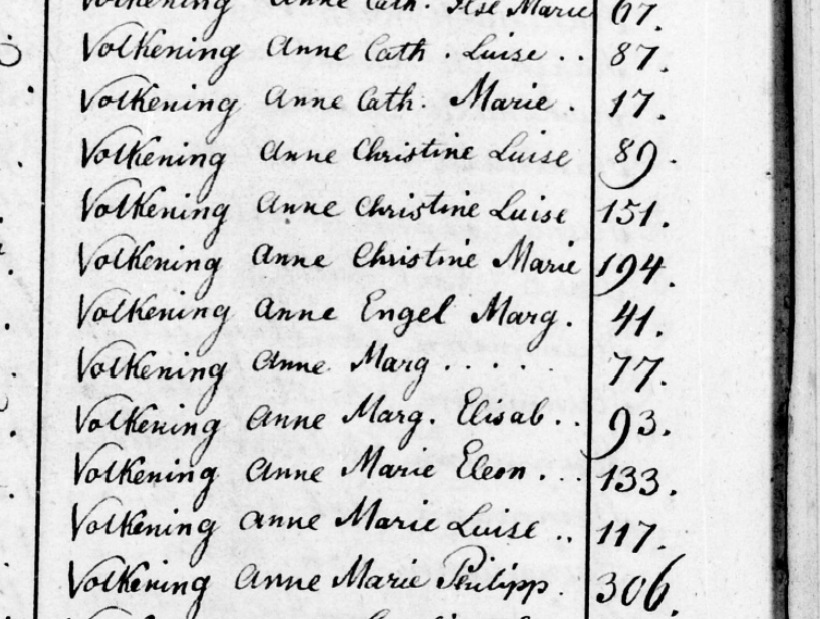 Volkening Anne Cath. Ilse Marie 67.
Volkening Anne Cath. Luise.. 87.
Volkening Anne Cath. Marie. 17.
Volkening Anne Christine Luise 89.
Volkening Anne Christine Luise 151.
Volkening Anne Christine Marie 194.
Volkening Anne Engel Marg. 41.
Volkening Anne Marg..... 77.
Volkening Anne Marg. Elisab.. 93.
Volkening Anne Marie Eleon... 133.
Volkening Anne Marie Luise.. 117.
Volkening Anne Marie Philipp. 306.